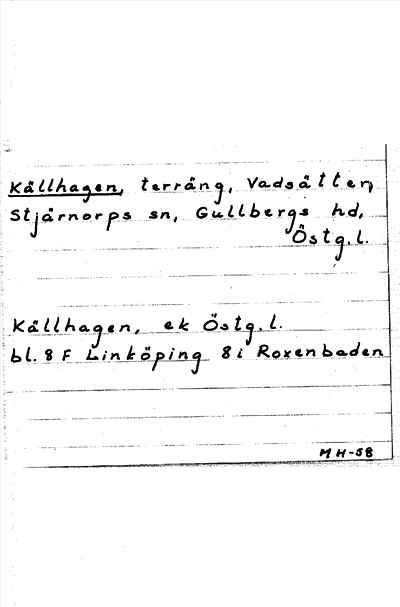 Källhagen, terräng, Vadsätter,
Stjärnorps sn, Gullbergs hd,
Östg.l.
Källhagen, ek Östg.l.
bl. 8 F Linköping 8i Roxenbaden
MH-58